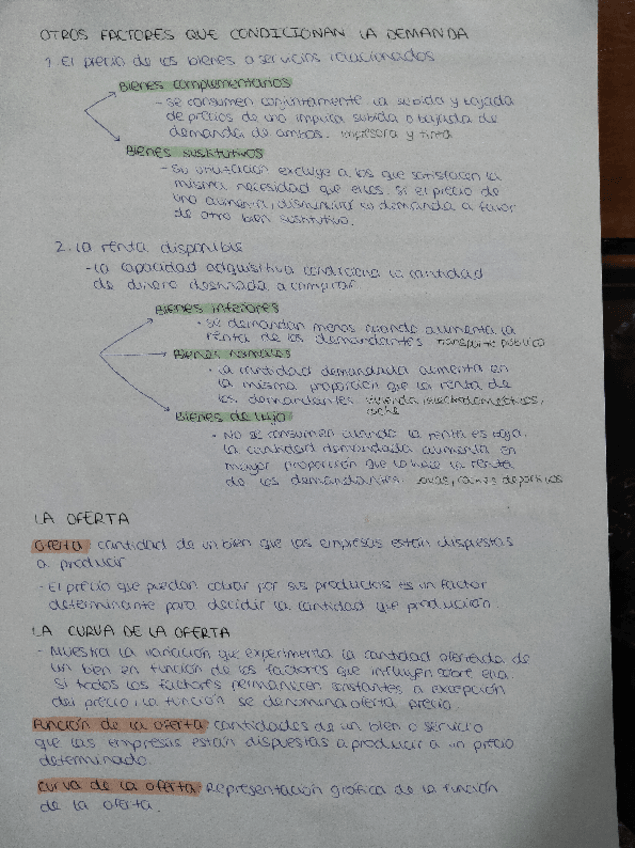 OTROS FACTORES QUE CONDICIONAN LA DEMANDA
1. El precio de los bienes o servicios relacionados
Bienes complementarios
- Se consumen conjuntamente. La subida y bajada
de precios de uno implica subida o bajada de
demanda de ambos. impresora y tinta
Bienes sustitutivos
- Su utilización excluye a los que satisfacen la
misma necesidad que ellos. Si el precio de
uno aumenta, disminuirá su demanda a favor
de otro bien sustitutivo.
2. La renta disponible
- La capacidad adquisitiva condiciona la cantidad
de dinero destinada a comprar
Bienes inferiores
· Se demandan menos cuando aumenta la
renta de los demandantes transporte público
Bienes normales
· La cantidad demandada aumenta en
la misma proporción que la renta de
los demandantes. vivienda, electrodomésticos,
coche
Bienes de lujo
· No se consumen cuando la renta es baja.
La cantidad demandada aumenta en
mayor proporción que lo hace la renta
de los demandantes. joyas, coches deportivos
LA OFERTA
Oferta: cantidad de un bien que las empresas están dispuestas
a producir
- El precio que puedan cobrar por sus productos es un factor
determinante para decidir la cantidad que producirán.
LA CURVA DE LA OFERTA
- Muestra la variación que experimenta la cantidad ofertada de
un bien en función de los factores que influyen sobre ella.
Si todos los factores permanecen constantes a excepción
del precio, la función se denomina oferta precio.
Función de la oferta: cantidades de un bien o servicio
que las empresas están dispuestas a producir a un precio
determinado.
Curva de la oferta: Representación gráfica de la función
de la oferta.